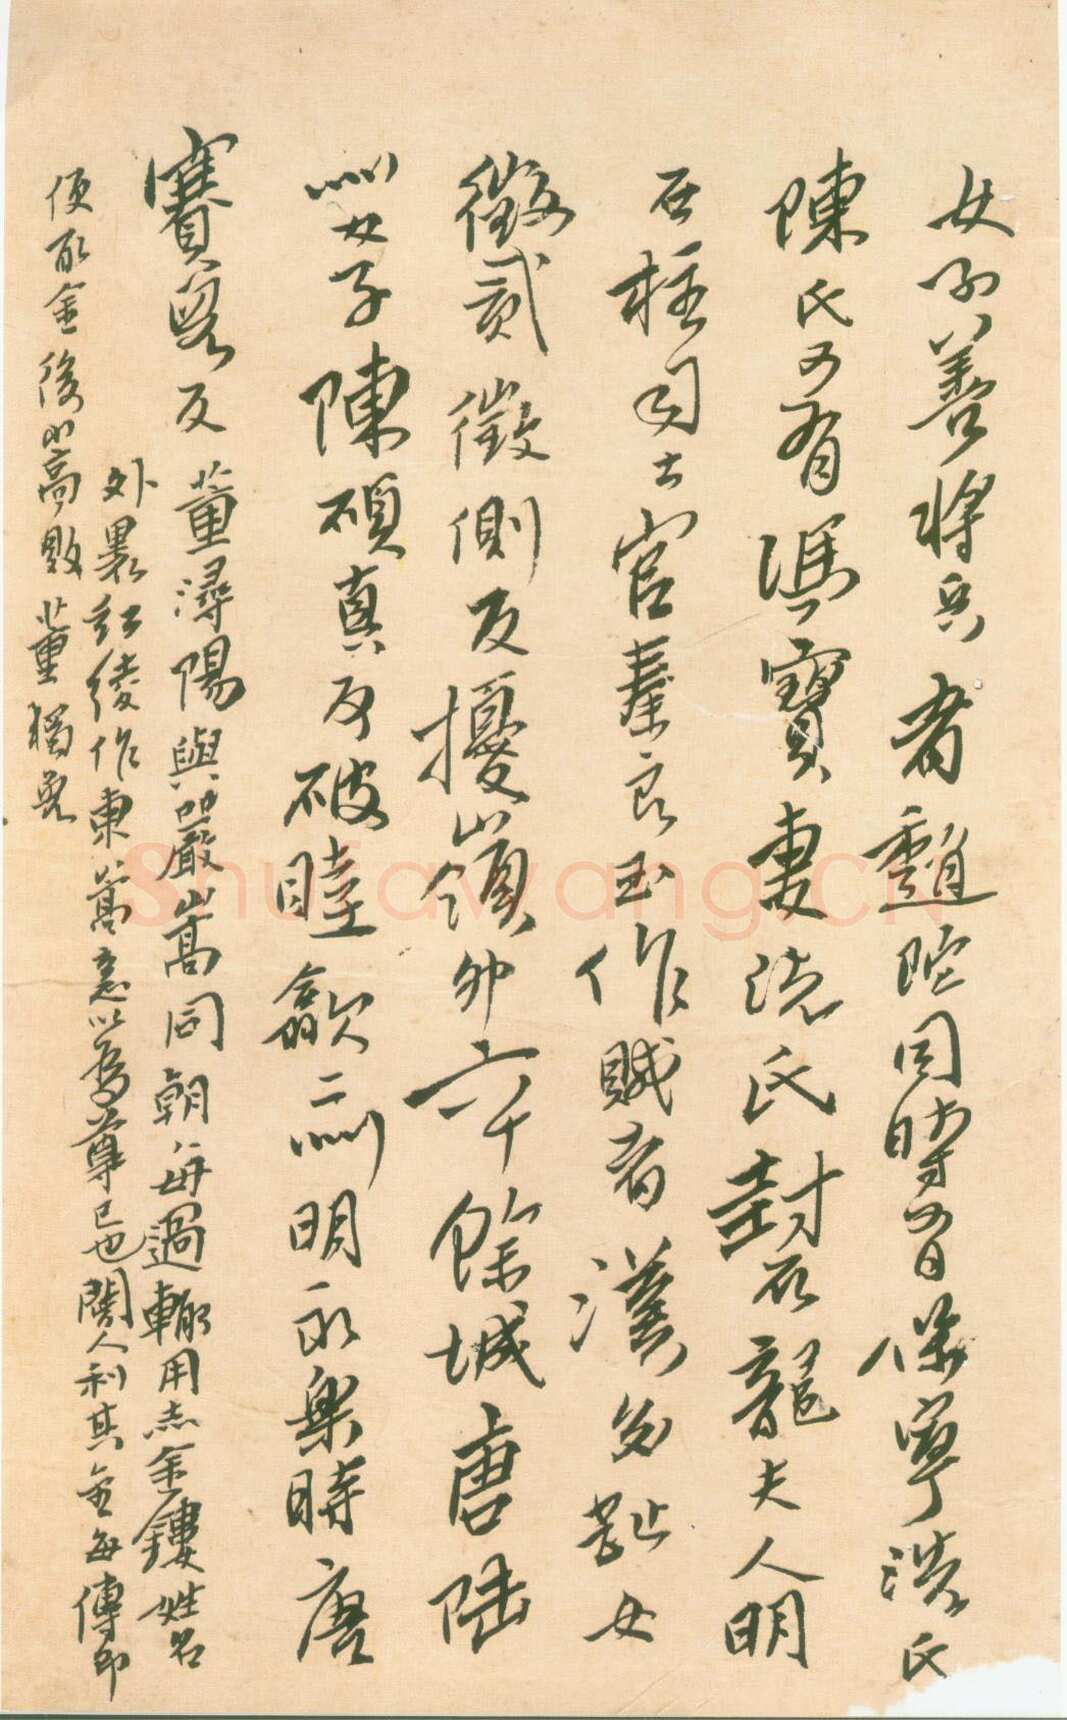 女子善將兵者趙陀同時有保寧洗氏
陳氏又有馮寶妻洗氏封石龍夫人明
石柱司土官秦良玉作賊者漢交趾女
徵貳徵側反擾嶺外六十餘城唐陸
州女子陳碩真反破睦歙二州明永樂時唐
賽兒反 董潯陽與嚴嵩同朝每過輒用赤金鏤姓名
外裹紅綾作柬嵩意以為尊己也閽人利其金每傳即
便取金後嵩敗董獨免
Shufawang.CN